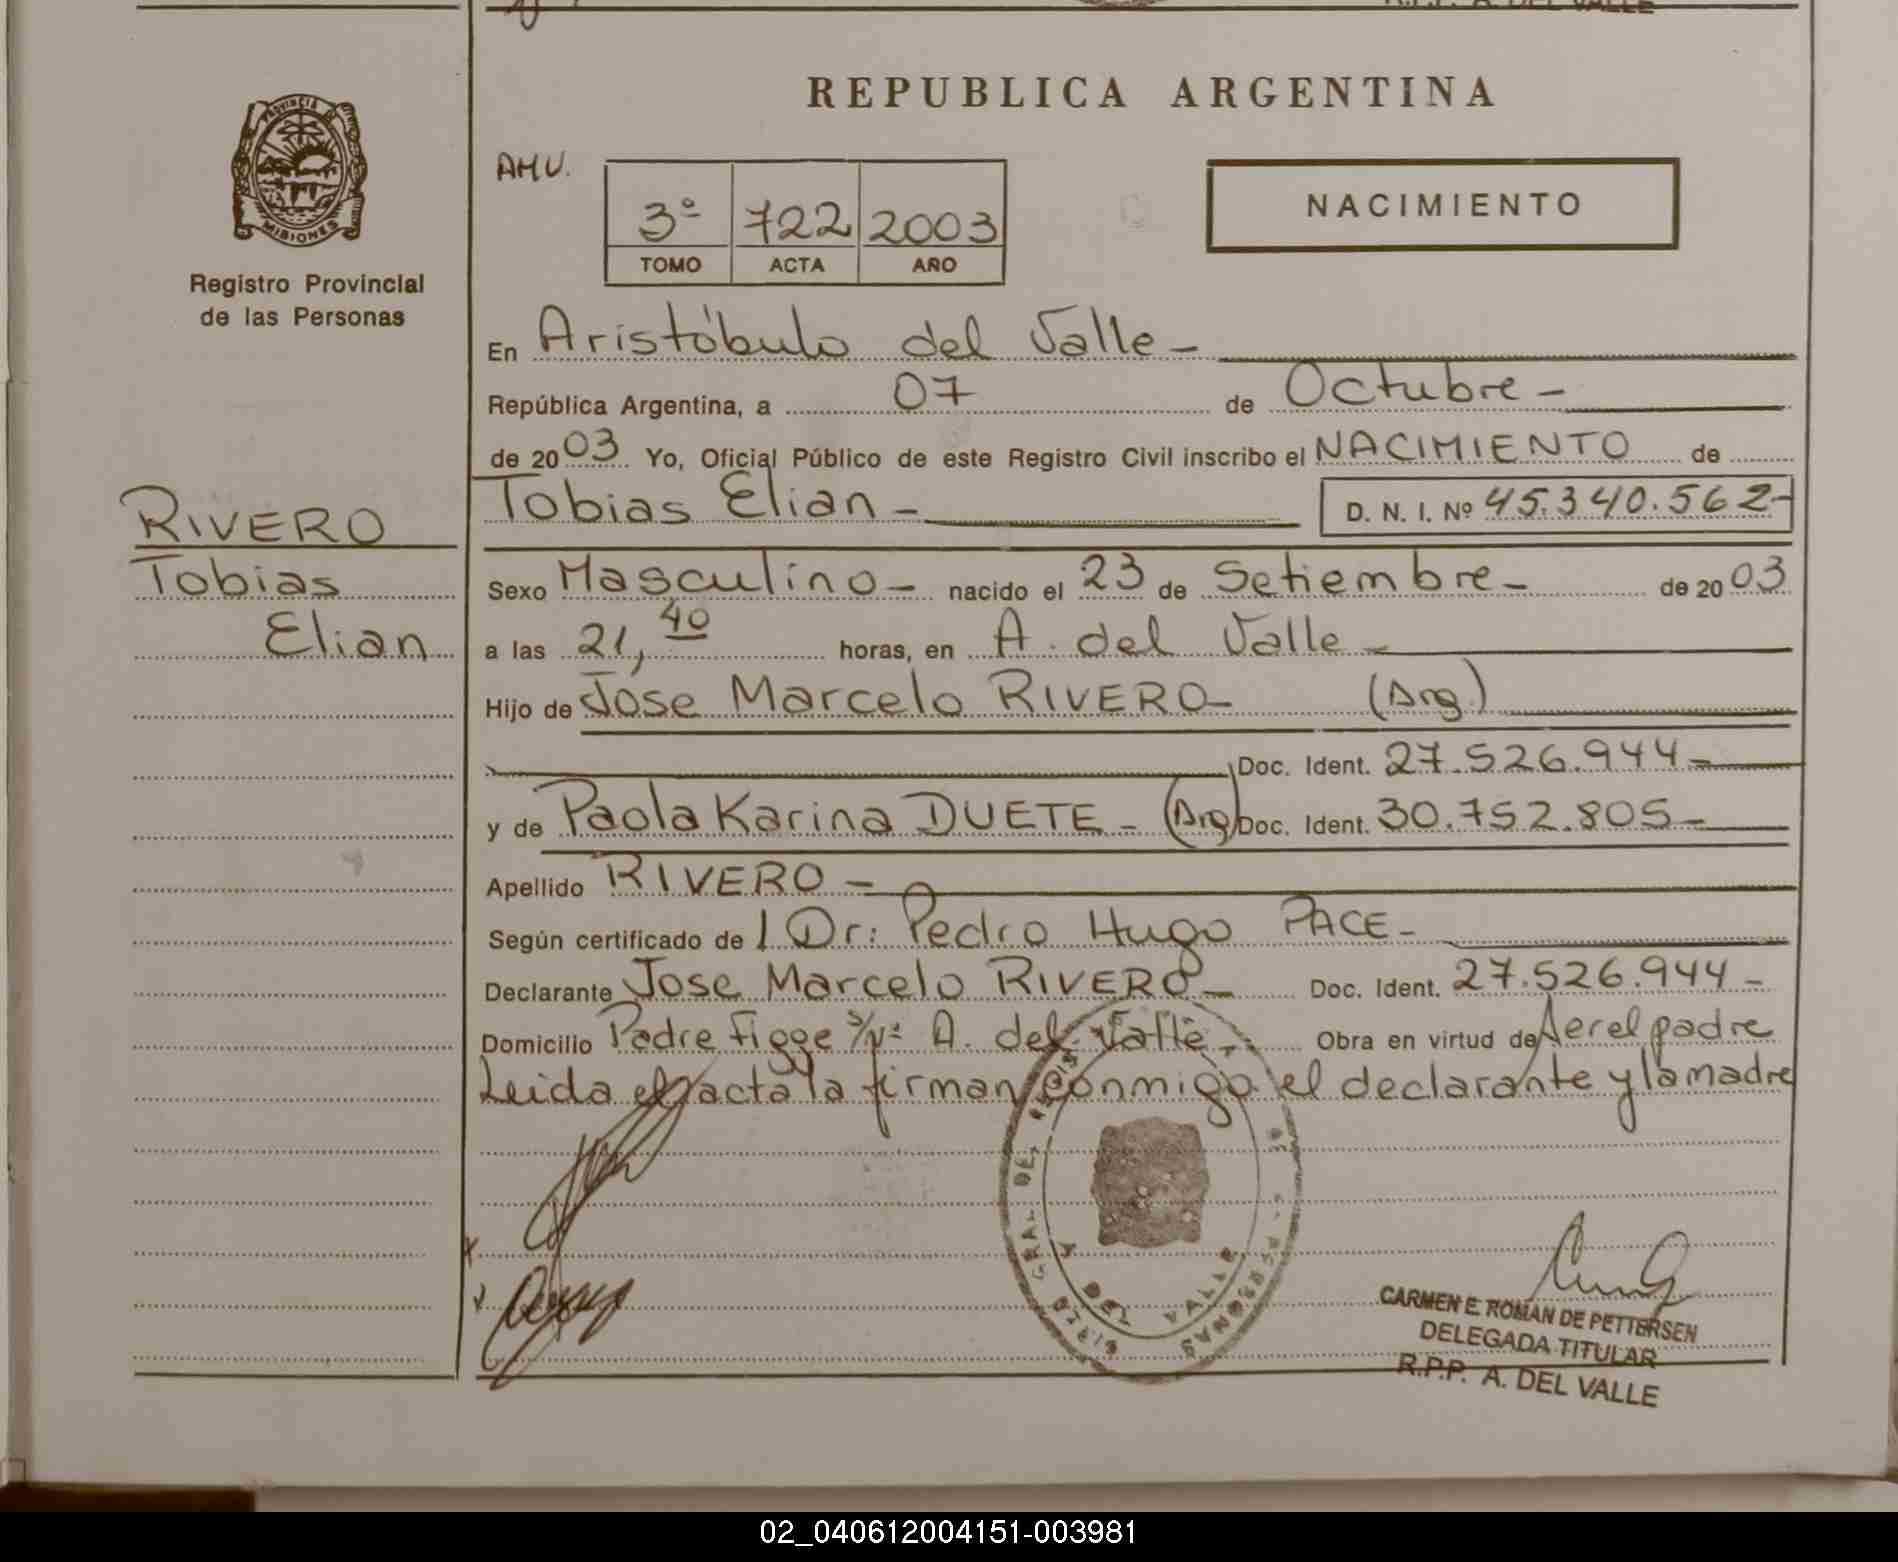 R.P.P. A. DEL VALLE
PROVINCIA DE
MISIONES
Registro Provincial
de las Personas
REPUBLICA ARGENTINA
AMU.
3º 722 2003
TOMO ACTA AÑO
NACIMIENTO
En Aristóbulo del Valle-
República Argentina, a 07 de Octubre-
de 2003 Yo, Oficial Público de este Registro Civil inscribo el NACIMIENTO de
Tobias Elian- D. N. I. Nº 45.340.562-
RIVERO
Tobias
Elian
Sexo Masculino- nacido el 23 de Setiembre- de 2003
a las 21,40 horas, en A. del Valle-
Hijo de José Marcelo RIVERO- (Arg.)
Doc. Ident. 27.526.944-
y de Paola Karina DUETE- (Arg) Doc. Ident. 30.752.805-
Apellido RIVERO-
Según certificado de / Dr: Pedro Hugo PACE-
Declarante Jose Marcelo RIVERO- Doc. Ident. 27.526.944-
Domicilio Padre Figge s/nº A. del Valle- Obra en virtud de ser el padre
Leida el acta la firman conmigo el declarante y la madre
DIREC. GRAL. DEL REGIST. DE PERSONAS
A DEL VALLE
CARMEN E. ROMAN DE PETTERSEN
DELEGADA TITULAR
R.P.P. A. DEL VALLE
02_040612004151-003981